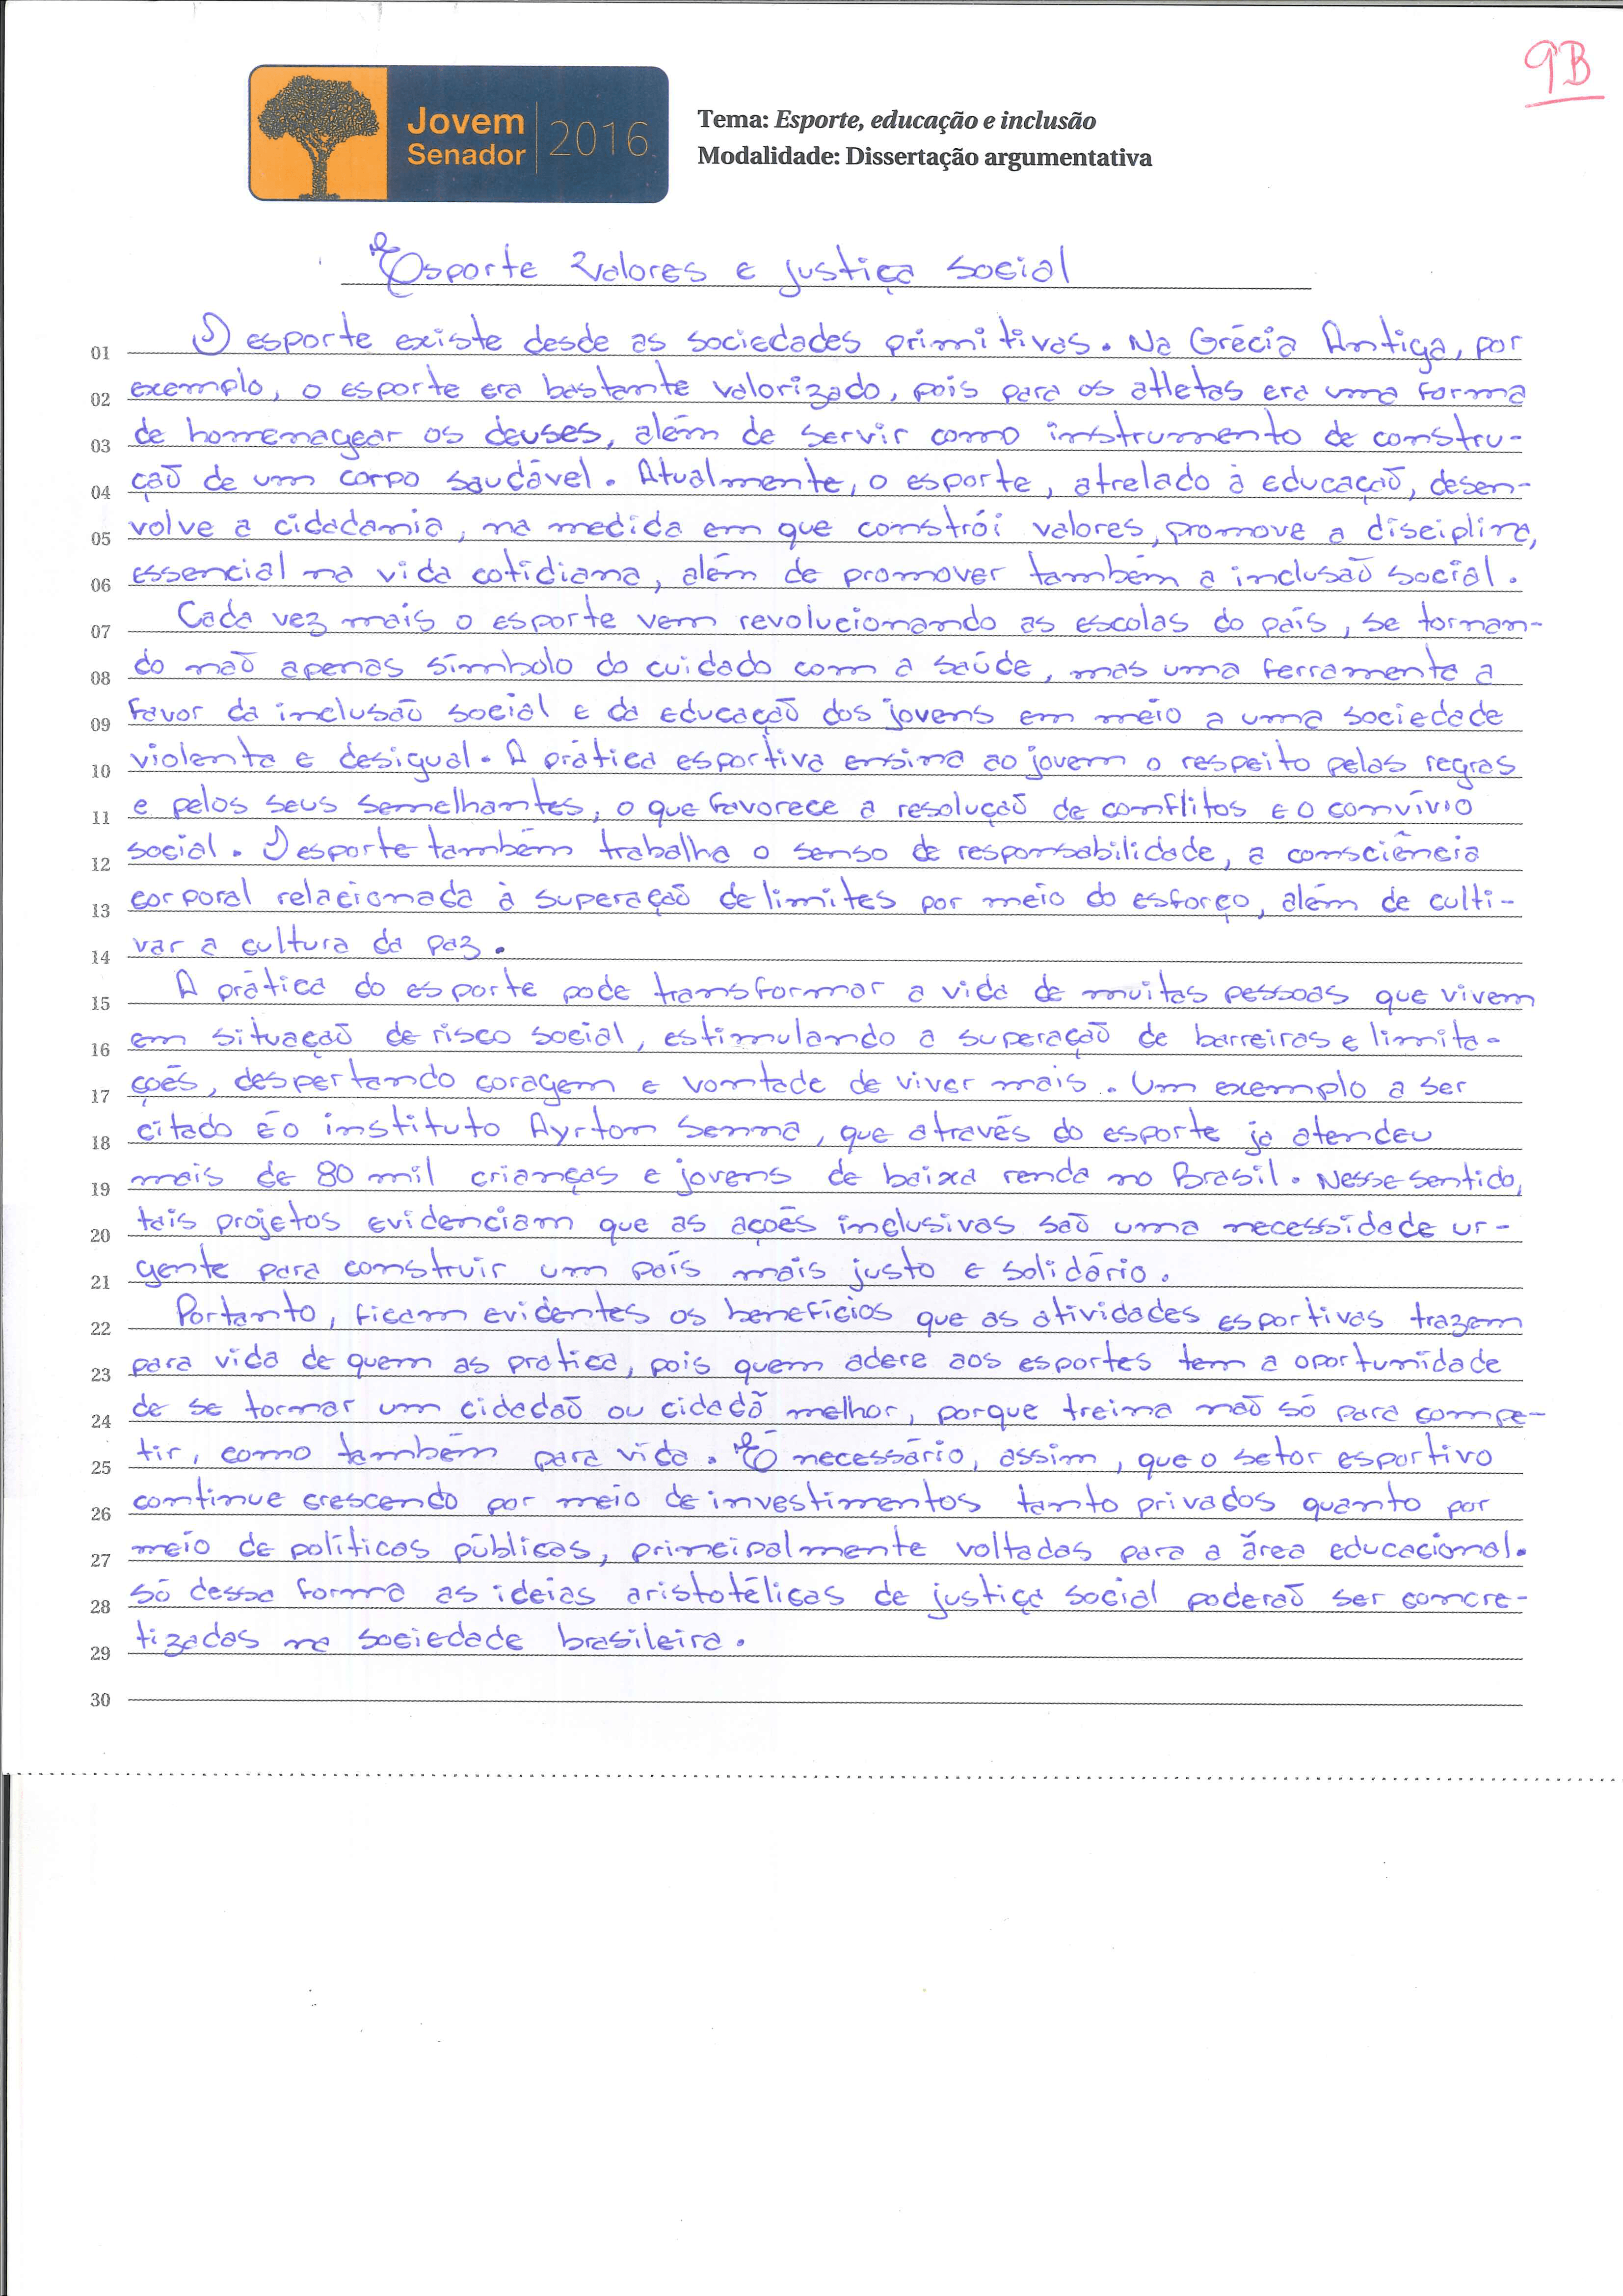 9B
Jovem
Senador
2016
Tema: Esporte, educação e inclusão
Modalidade: Dissertação argumentativa
Esporte valores e justiça social
01 O esporte existe desde as sociedades primitivas. Na Grécia Antiga, por
02 exemplo, o esporte era bastante valorizado, pois para os atletas era uma forma
03 de homenagear os deuses, além de servir como instrumento de constru-
04 ção de um corpo saudável. Atualmente, o esporte, atrelado à educação, desen-
05 volve a cidadania, na medida em que constrói valores, promove a disciplina,
06 essencial na vida cotidiana, além de promover também a inclusão social.
07 Cada vez mais o esporte vem revolucionando as escolas do país, se tornan-
08 do não apenas símbolo do cuidado com a saúde, mas uma ferramenta a
09 favor da inclusão social e da educação dos jovens em meio a uma sociedade
10 violenta e desigual. A prática esportiva ensina ao jovem o respeito pelas regras
11 e pelos seus semelhantes, o que favorece a resolução de conflitos e o convívio
12 social. O esporte também trabalha o senso de responsabilidade, a consciência
13 corporal relacionada à superação de limites por meio do esforço, além de culti-
14 var a cultura da paz.
15 A prática do esporte pode transformar a vida de muitas pessoas que vivem
16 em situação de risco social, estimulando a superação de barreiras e limita-
17 ções, despertando coragem e vontade de viver mais. Um exemplo a ser
18 citado é o instituto Ayrton Senna, que através do esporte ja atendeu
19 mais de 80 mil crianças e jovens de baixa renda no Brasil. Nesse sentido,
20 tais projetos evidenciam que as ações inclusivas são uma necessidade ur-
21 gente para construir um país mais justo e solidário.
22 Portanto, ficam evidentes os benefícios que as atividades esportivas trazem
23 para vida de quem as pratica, pois quem adere aos esportes tem a oportunidade
24 de se tornar um cidadão ou cidadã melhor, porque treina não só para compe-
25 tir, como também para vida. É necessário, assim, que o setor esportivo
26 continue crescendo por meio de investimentos tanto privados quanto por
27 meio de políticas públicas, principalmente voltadas para a área educacional.
28 Só dessa forma as ideias aristotélicas de justiça social poderão ser concre-
29 tizadas na sociedade brasileira.
30